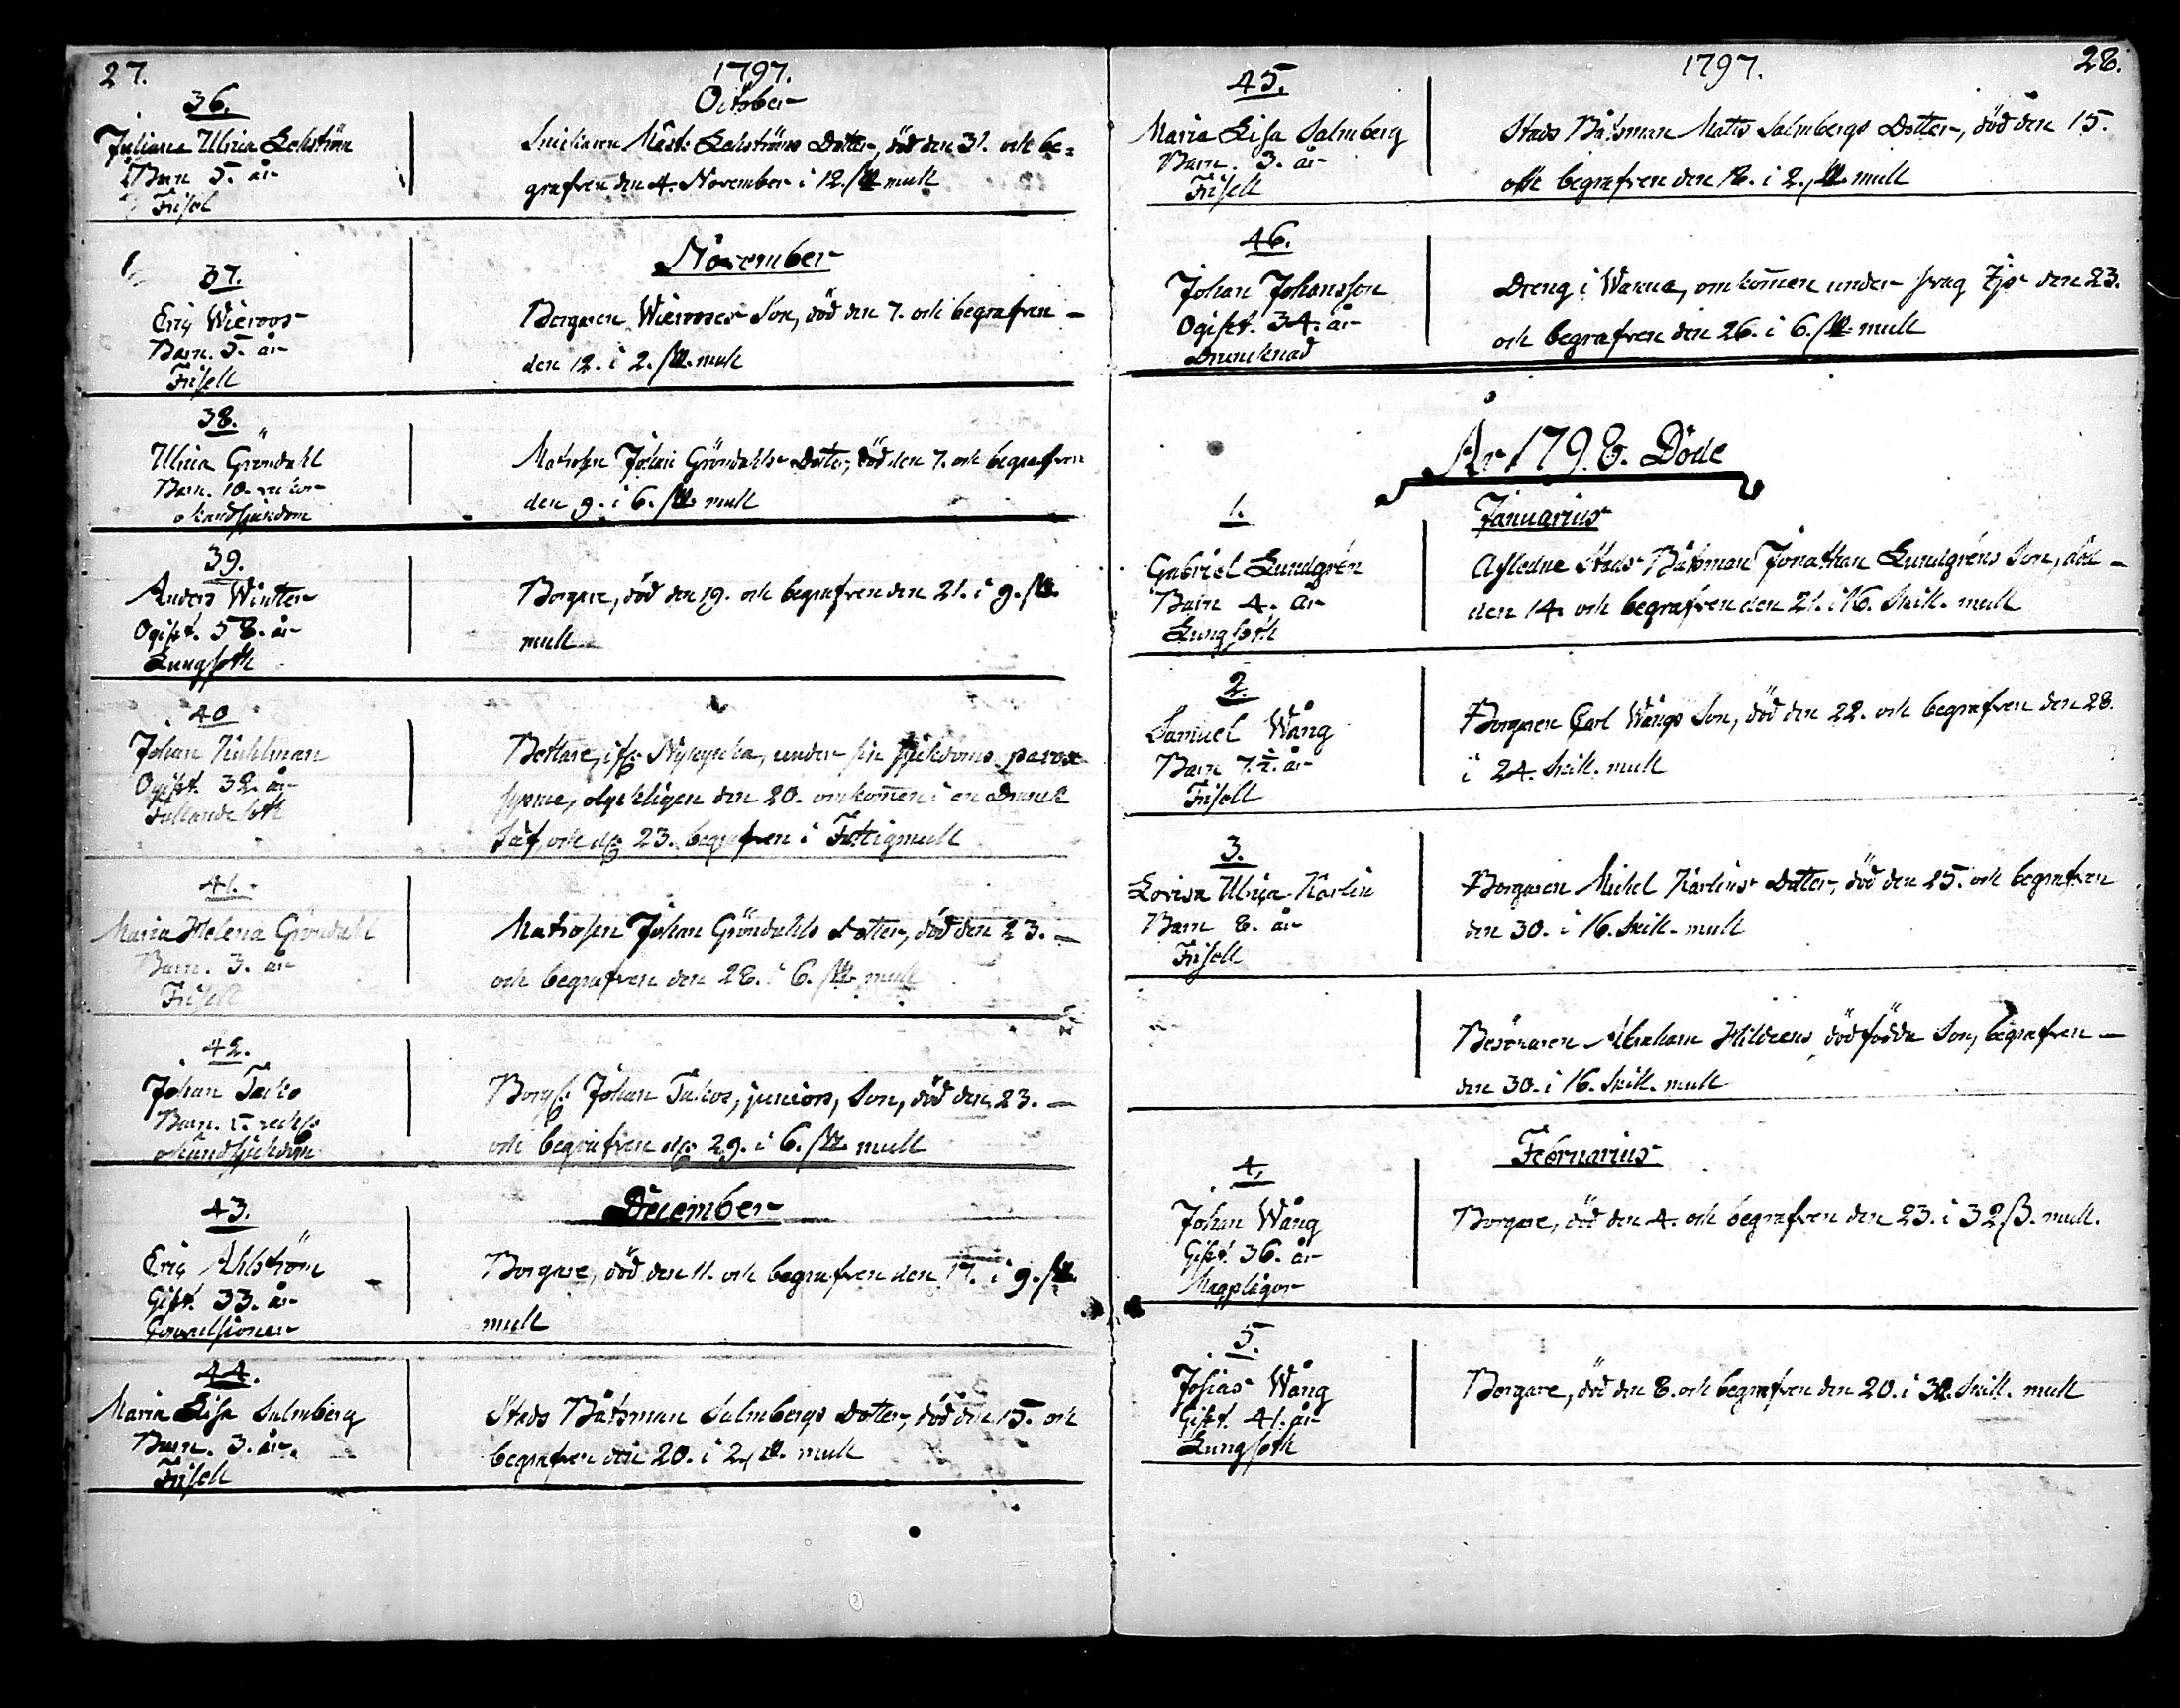 27.
1797.
October
36.
Juliana Ulrica Lekström
Barn 5. år
Frisel
Snickaren Mäst: Lekströms Dotter, död den 31. och be=
grafven den 4. November i 12. sk mull
November
37.
Eriç Wieroos
Barn. 5. år
Frisell
Borgaren Wierooses Son, död den 7. och begrafven
den 12. i 2. sk. mull
38.
Ulrica Gröndahl
Barn. 10. veckor
okändsjukdom
Matrosen Johan Gröndahls Dotter, död den 7. och begrafven
den 9. i 6. sk mull
39.
Anders Wintter
Ogift. 58. år
Lungsott
Borgare, död den 19. och begrafven den 21. i 9. sk.
mull
40
Johan Kuhlman
Ogift. 32. år
Fallandesott
Betlare, under sin sjukdoms parox-
sysme, olyckligen den 20. omkom̅en i en
och d: 23. begrafven i Fattigmull
41.
Maria Helena Gröndahl
Barn. 3. år
Frisell
Matrosen Johan Gröndahls Dotter, död den 23.
och begrafven den 28. i 6. sk mull
42.
Johan
Barn.
okändsjukdom
Borgs: Johan juniors, Son, död den 23.
och begrafven d: 29. i 6. sk mull
December
43.
Eriç Ahlström
Gift. 33. år
Convulsioner
Borgare, död den 11. och begrafven den 17. i 9. sk.
mull
44.
Maria Lisa Salmberg
Barn. 3. år.
Frisell
Stads Båtsman Salmbergs Dotter, död den 15. och
begrafven den 20. i 2. sk. mull
1797.
28.
45.
Maria Lisa Salmberg
Barn. 3. år
Frisell
Stads Båtsman Matts Salmbergs Dotter, död den 15.
och begrafven den 18. i 2. sk. mull
46.
Johan Johansson
Ogift. 34. år
Drunknad
Dreng i om kom̅en under svag Ijs den 23.
och begrafven den 26. i 6. sk mull
År 1798. Döde
Januarius
1.
Gabriel Lundgrén
Barn 4. år
Lungsott
Afledne Stads Båtsman Jonathan Lundgréns Son, död
den 14. och begrafven den 21. i 16. skill. mull
2.
Samuel Wång
Barn 7.½ år
Frisell
Borgaren Carl Wångs Son, död den 22. och begrafven den 28.
i 24. skill. mull
3.
Lovisa Ulrica Karlin
Barn 8. år
Frisell
Borgaren Michel Karlins Dotter, död den 25. och begrafven
den 30. i 16. skill. mull
Besökaren Abraham dödfödda Son, begrafven
den 30. i 16. skill. mull
Februarius
4.
Johan Wång
Gift. 36. år
Magplågor
Borgare, död den 4. och begrafven den 23. i 32ß. mull.
5.
Josias Wång
Gift. 41. år
Lungsott
Borgare, död den 8. och begrafven den 20. i 32. skill. mull